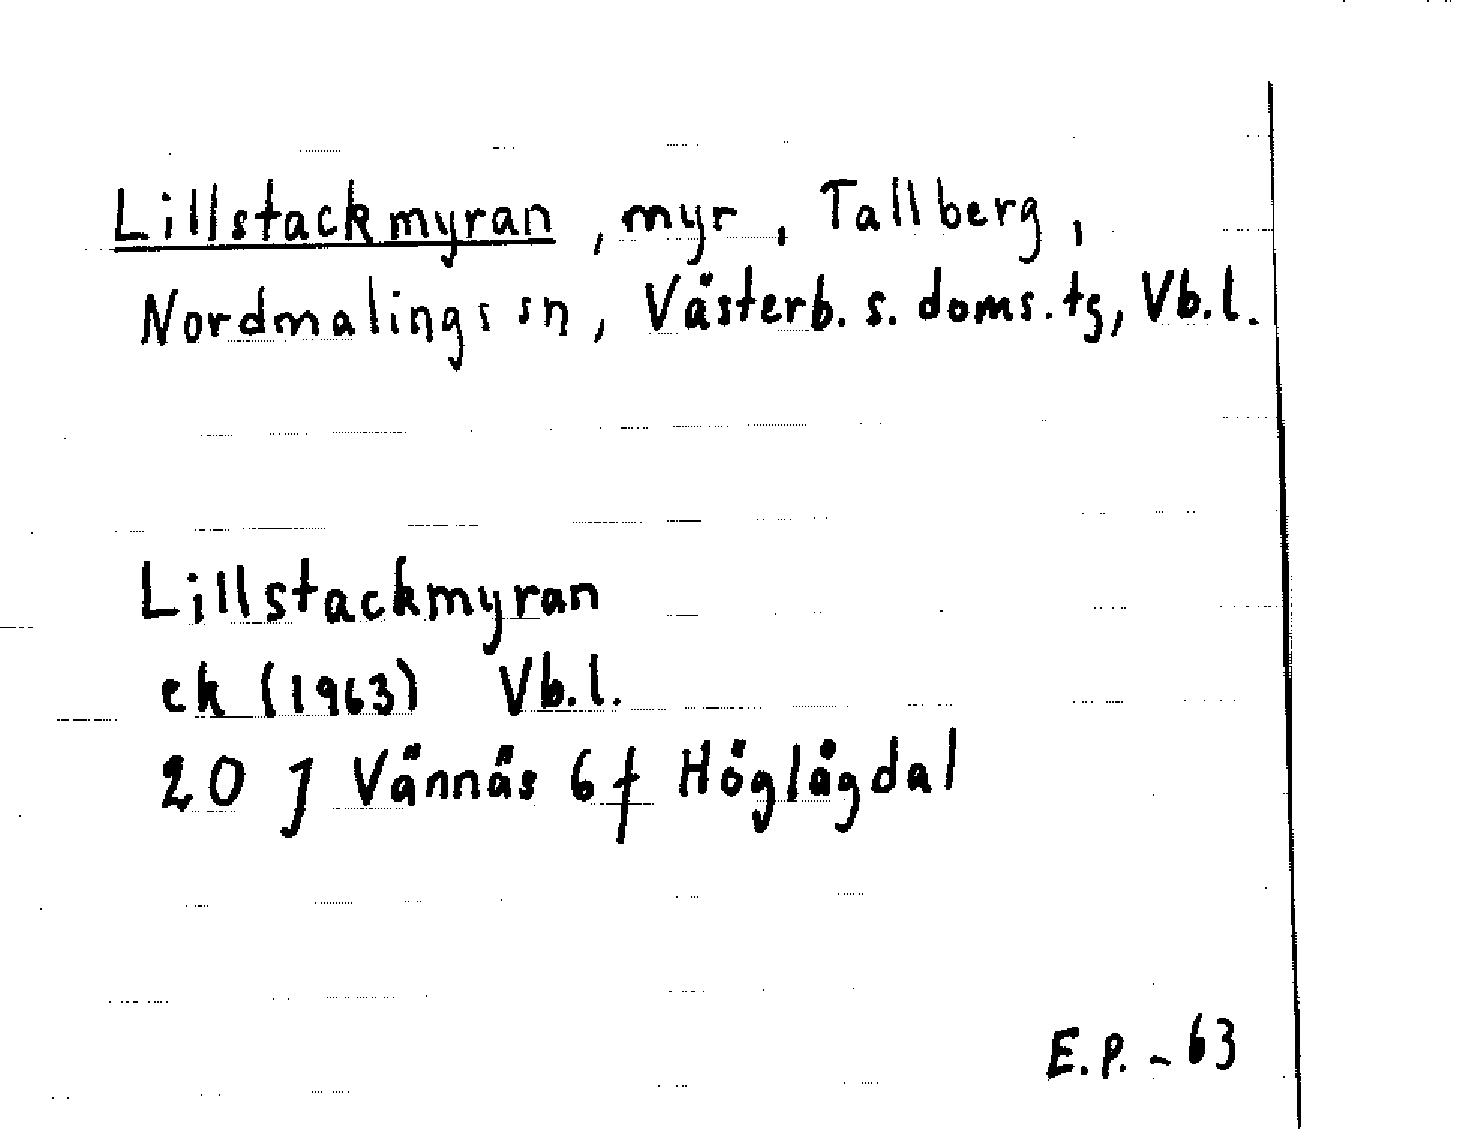 Lillstackmyran, myr, Tallberg,
Nordmalings sn, Västerb. s. doms. tg, Vb.l.
Lillstackmyran
ek (1963) Vb.l.
20 J Vännäs 6f Höglågdal
E.P. - 63